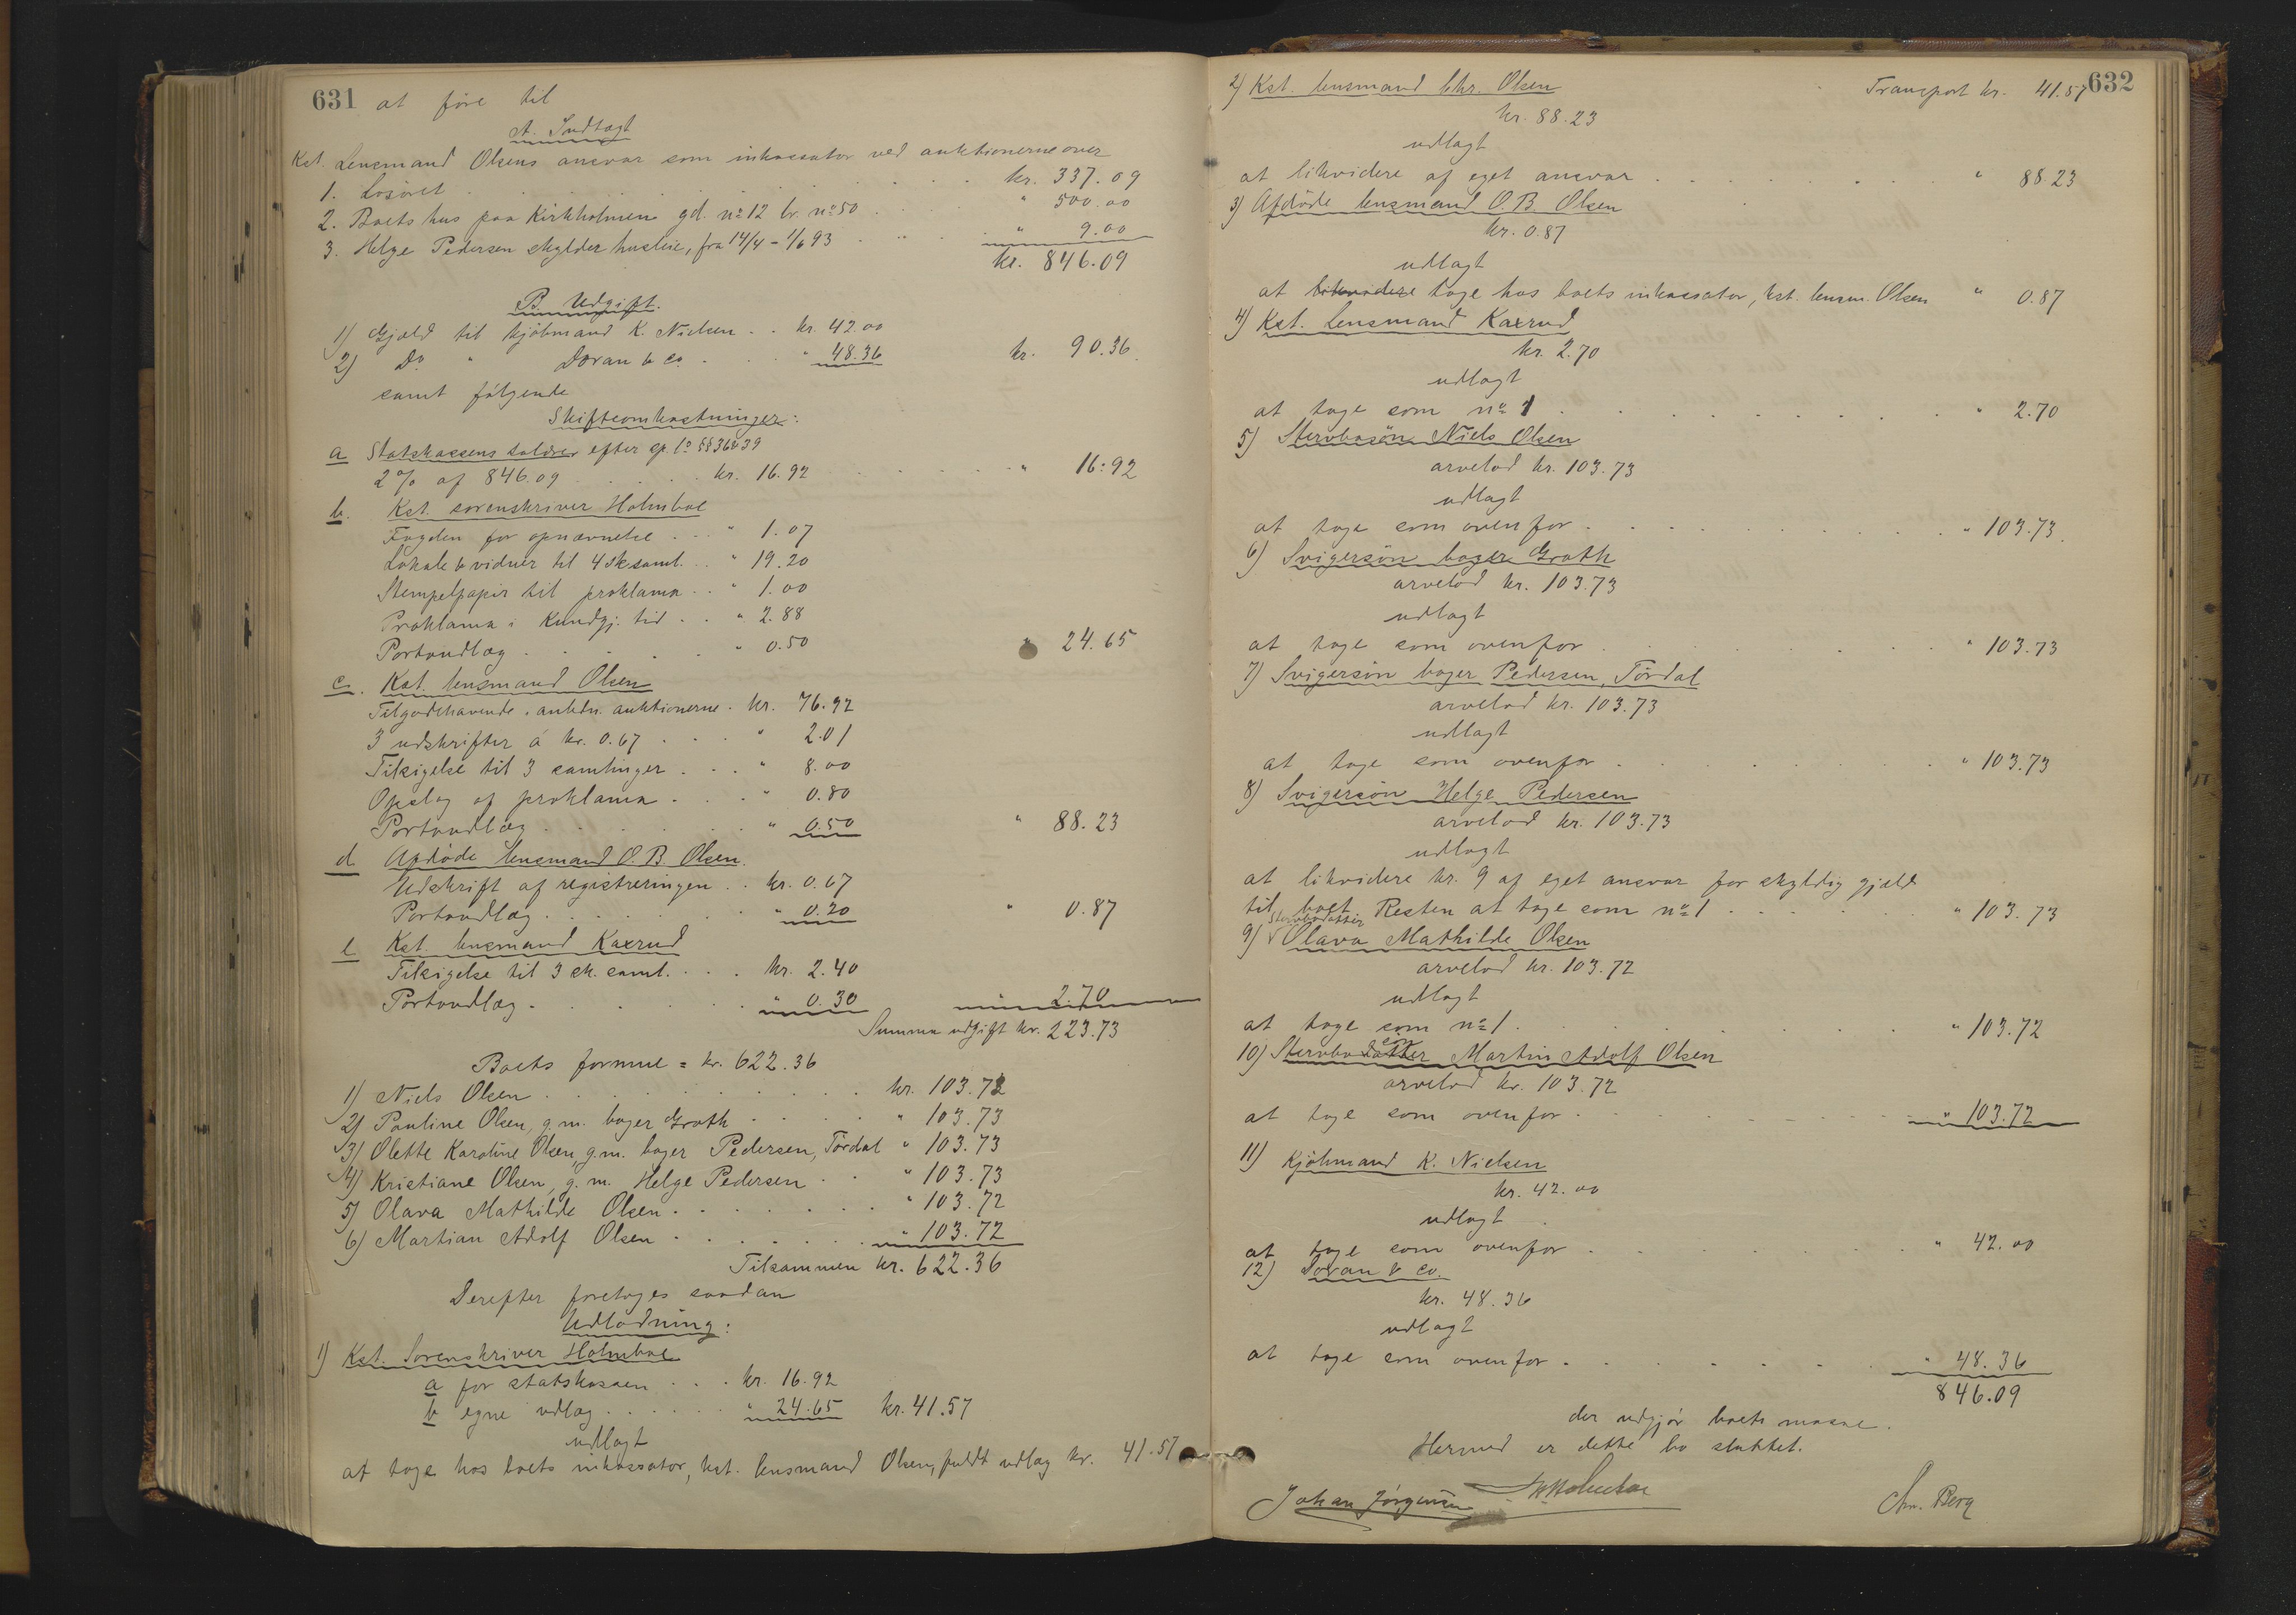 631 at føre til
A. Indtægt
Kst. Lensmand Olsens ansvar som inkassator ved auktionerne over
1. Løsøret . . . . kr. 337.09
2. Boets hus paa Kirkholmen gd. no 12 br. no 50 . . . " 500.00
3. Helge Pedersen skylder husleie, fra 14/4 - 1/6 93 . . . " 9.00
kr. 846.09
B. Udgift.
1) Gjæld til kjøbmand K. Nielsen . . kr. 42.00
2) Do " Doran & Co. . . . " 48.36 kr. 90.36
samt følgende
Skifteomkostninger:
a Statskassens salærer efter sp. l. §§ 36 & 39
2 % af 846.09 . . . kr. 16.92 . . . " 16:92
b. Kst. sorenskriver Holmboe
Fogden for opnævnelse . . . " 1.07
Lokale & vidner til 4 sk. saml. . . " 19.20
Stempelpapir til proklama . . " 1.00
Proklama i Kundgj. tid . . " 2.88
Portoudlæg . . . " 0.50 " 24.65
c. Kst. lensmand Olsen
Tilgodehavende . anledn. auktionerne . kr. 76.92
3 udskrifter á kr. 0.67 . . . " 2.01
Tilsigelse til 3 samlinger . . . " 8.00
Opslag af proklama . . . " 0.80
Portoudlæg . . . " 0.50 " 88.23
d Afdøde lensmand O. B. Olsen.
Udskrift af registreringen . . kr. 0.67
Portoudlæg . . . " 0.20 " 0.87
e Kst. lensmand Kaxrud
Tilsigelse til 3 sk. saml. . . . kr. 2.40
Portoudlæg . . . " 0.30 2.70
Summa udgift kr. 223.73
Boets formue = kr. 622.36
1) Niels Olsen . . . kr. 103.73
2) Pauline Olsen, g. m. bager Groth . . . " 103.73
3) Olette Karoline Olsen, g. m. bager Pedersen, Tördal " 103.73
4) Kristiane Olsen, g. m. Helge Pedersen . . " 103.73
5) Olava Mathilde Olsen . . . " 103.72
6) Martian Adolf Olsen . . . " 103.72
Tilsammen kr. 622.36
Derefter foretoges saadan
Udlodning:
1) Kst. Sorenskriver Holmboe
a for statskassen . . . kr. 16.92
b egne udlæg . . . " 24.65 kr. 41.57
udlagt
at tage hos boets inkassator, kst. lensmand Olsen, fuldt udlæg kr. 41.57
632
2) Kst. lensmand Chr. Olsen Transport kr. 41.57
kr. 88.23
udlagt
at likvidere af eget ansvar . . . " 88 23
3) Afdøde lensmand O. B. Olsen
kr. 0.87
udlagt
at likvidere tage hos boets inkassator, kst. lensm. Olsen " 0.87
4) Kst. Lensmand Kaxrud
kr. 2.70
udlagt
at tage som no 1 . . . " 2.70
5) Stervbosön Niels Olsen
arvelod kr. 103.73
udlagt
at tage som ovenfor . . . " 103.73.
6) Svigersön bager Groth
arvelod kr. 103.73
udlagt
at tage som ovenfor . . . " 103.73
7) Svigersön bager Pedersen, Tördal
arvelod kr. 103.73
udlagt
at tage som ovenfor . . . " 103.73
8) Svigersön Helge Pedersen
arvelod kr. 103.73
udlagt
at likvidere kr. 9 af eget ansvar for skyldig gjæld
til boet. Resten at tage som no 1 . . . " 103.73
Stervbodatter
9) Olava Mathilde Olsen
arvelod kr. 103.72
udlagt
at tage som no 1 . . . " 103.72
sön
10) Stervbodatter Martin Adolf Olsen
arvelod kr. 103.72
at tage som ovenfor . . . " 103.72
11) Kjöbmand K. Nielsen
kr. 42.00
udlagt
at tage som ovenfor . . . " 42.00
12) Doran & Co.
kr. 48.36
udlagt
at tage som ovenfor . . . " 48.36
846.09
der udgjør boets masse.
Hermed er dette bo sluttet.
Johan Jörgensen Holmboe Chr. Berg